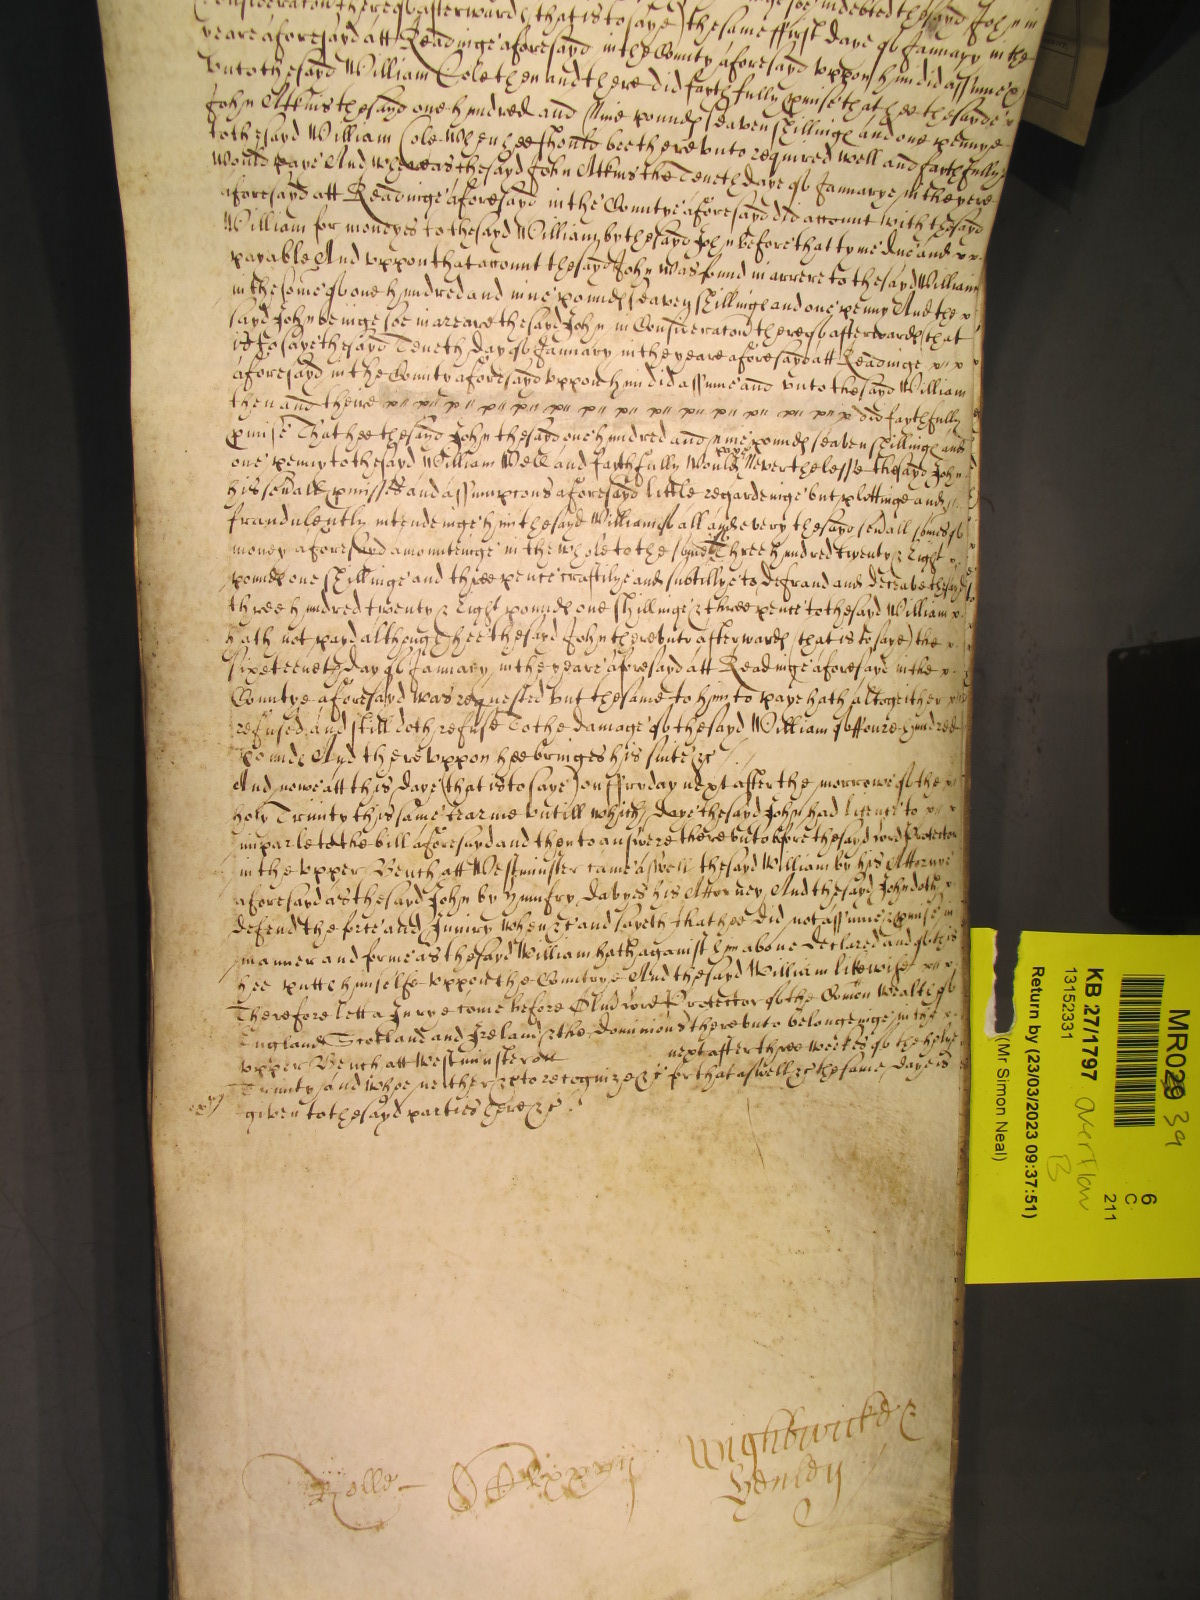 indebted the sayd John in
Consideracon thereof afterwards (that is to saye) the same ffirst daye of January in the
yeare aforesayd att Readinge aforesayd in the County aforesayd uppon him did assume x
unto the sayd William Cole then and there did faythfully pmise that hee the sayde x
John Atkins the sayd one hundred and Nine pounds seaven shillings and one pennye
to the sayd William Cole When hee should bee thereunto required well and faythfully
Would paye And whereas the sayd John Atkins the Tenth daye of Januarye in the yere
aforesayd att Readinge aforesayd in the Countye aforesayd did account with the sayd
William for moneyes to the sayd William by the sayd John before that tyme due and
payable And uppon that account the sayd John was found in arrere to the sayd William
in the some of one hundred and nine pounds seaven shillings and one penny And the x
sayd John beinge soe in arreare the sayd John in Consideracon thereof afterwards (that
is to saye the sayd Tenth day of January in the yeare aforesayd att Readinge
aforesayd in the County aforesayd uppon him did assume and unto the sayd William
then and there did faythfully
pmise That hee the sayd John the sayd one hundred and nine pounds seaven shillings and
one penny to the sayd William Well and faythfully Would paye Neverthelesse the sayd John
his sevall pmisses and assumpcons aforesayd little regardeinge but plottinge and
fraudulently intendeinge him the sayd William of all and every the sayd sevall somes of
money aforesayd amounteinge in the whole to the some of Three hundred twenty & Eight
pounds one shillinge and three pence craftilye and subtillye to defraud and deceave the sayd
three hundred twenty & Eight pounds one shillinge & three pence to the sayd William x
hath not payd although hee the sayd John thereunto afterwards (that is to saye) the x
sixteeneth day of January in the yeare aforesayd att Readinge aforesayd in the x
Countye aforesayd was requested but the same to him to paye hath altogeither
refused and still doth refuse To the damage of the sayd William of ffoure hundred
pounds And thereuppon hee bringes his suite &c
And nowe att this daye (that is to saye) on ffryday next after the morrowe of the
holy Trinity this same tearme untill which daye the sayd John had licence to
imparle to the bill aforesayd and then to answere thereunto before the sayd lord Protector
in the upper Bench att Westminster came aswell the sayd William by his Attorney
aforesayd as the sayd John by Humfry Davyes his Attorney And the sayd John doth
defend the force and Iniury when &c and sayeth that hee did not assume & pmise in
manner and forme as the sayd William hath against him above declared and of this
hee putts himselfe uppon the Countrye And the sayd William likewise
Therefore lett a Jurye come before Our lord Protector of the Comon Wealth of
England Scotland and Ireland & the dominions thereunto belongeinge in the x
upper Bench att Westminster on next after three weekes of the holye
Trinity and whoe neither &c to recognize &c for that aswell &c the same daye is
given to the sayd parties there &c
Rolle
Wightwicke &
Henley
MR02
39
6
C
211
KB 27/1797
overflow
B
13152331
Return by (23/03/2023 09:37:51)
(Mr Simon Neal)